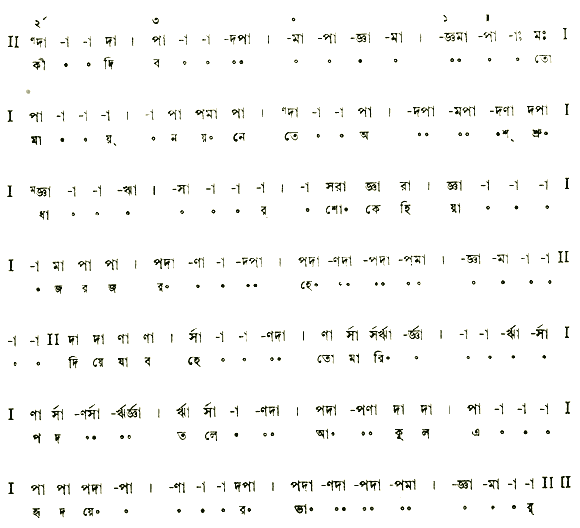 ২´ ৩ ০ ১ ॥
II ণদা -া -া দা । পা -া -া -দপা । -মা -পা -জ্ঞা -মা । -জ্ঞমা -পা -াঃ মঃ I
কী ০ ০ দি ব ০ ০ ০০ ০ ০ ০ ০ ০০ ০ ০ তো
I পা -া -া -া । -া পা পমা পা । ণদা -া -া পা । -দপা -মপা -দণা দপা I
মা ০ ০ য়্ ০ ন য়০ নে তে ০ ০ অ ০০ ০০ ০শ্ শ্রু০
I মজ্ঞা -া -া -ঋা । -সা -া -া -া । -া সরা জ্ঞা রা । জ্ঞা -া -া -া I
ধা ০ ০ ০ ০ ০ ০ র্ ০ শো০ কে হি য়া ০ ০ ০
I -া মা পা পা । পদা -ণা -া -দপা । পদা -ণদা -পদা -পমা । -জ্ঞা -মা -া -া II
০ জ র জ র০ ০ ০ ০০ হে০ ০০ ০০ ০০ ০ ০ ০ ০
-া -া II দা দা ণা ণা । র্সা -া -া -ণদা । ণা র্সা র্সর্ঋা -র্জ্ঞা । -া -া -র্ঋা -র্সা I
০ ০ দি য়ে যা ব হে ০ ০ ০০ তো মা রি০ ০ ০ ০ ০ ০
I ণা র্সা -ণর্সা -র্ঋর্জ্ঞা । র্ঋা র্সা -া -ণদা । পদা -পণা দা দা । পা -া -া -া I
প দ ০০ ০০ ত লে ০ ০০ আ০ ০০ কূ ল এ ০ ০ ০
I পা পা পদা -পা । -ণা -া -া দপা । পদা -ণদা -পদা -পমা । -জ্ঞা -মা -া -া II II
হৃ দ য়ে০ ০ ০ ০ ০ র০ ভা০ ০০ ০০ ০০ ০ ০ ০ র্